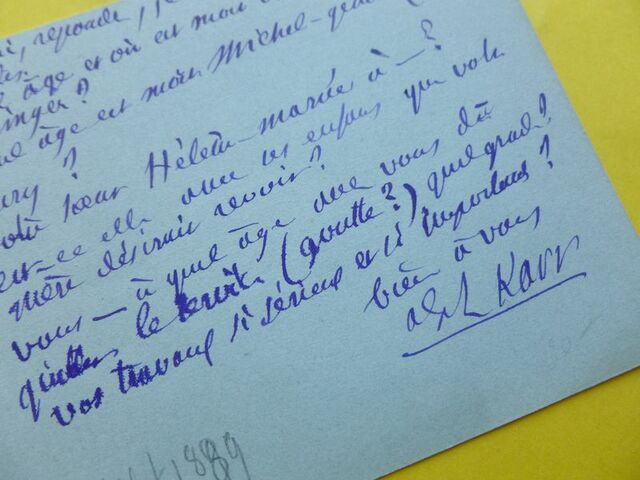 reponde
âge et où est mon
âge est mort Michel-
?
soeur Hélène mariée à — ?
est-ce elle avec les enfans que votre
mère désirait revoir?
vous — à quel âge avez vous dû
quitter le service (goutte?) quel grade?
vos travaux si sérieux et si importans?
bien à vous
alph Karr
1889